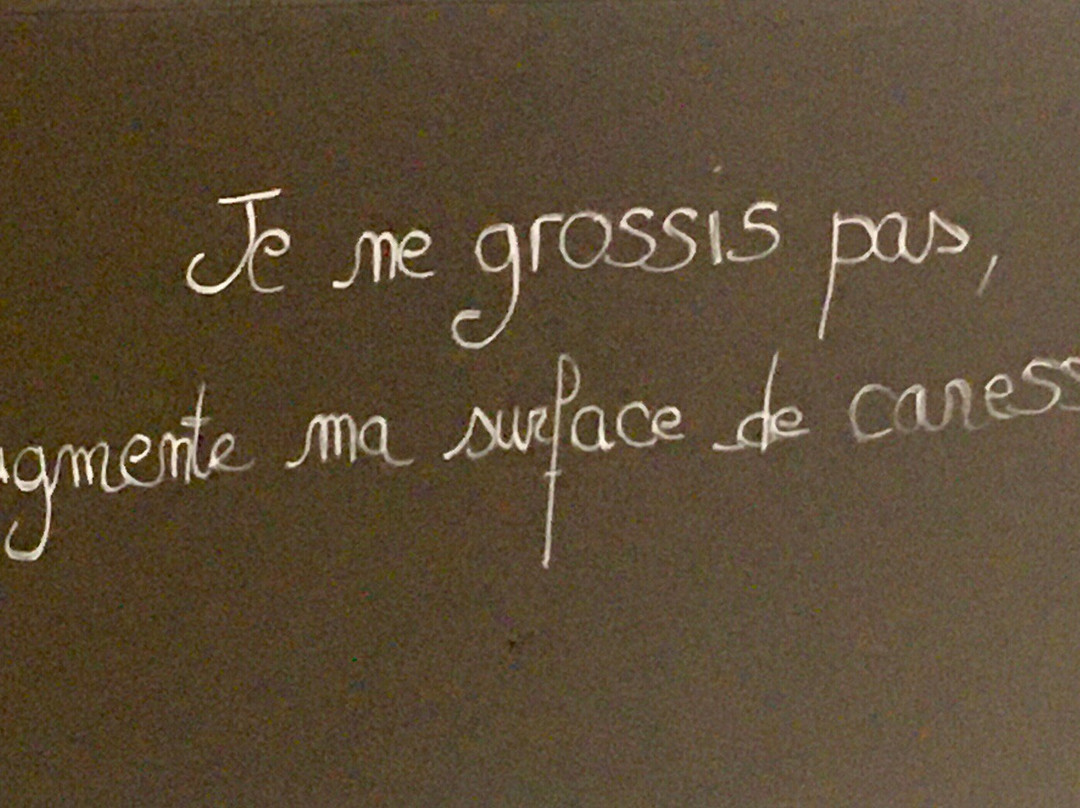 Je ne grossis pas,
ugmente ma surface de caress